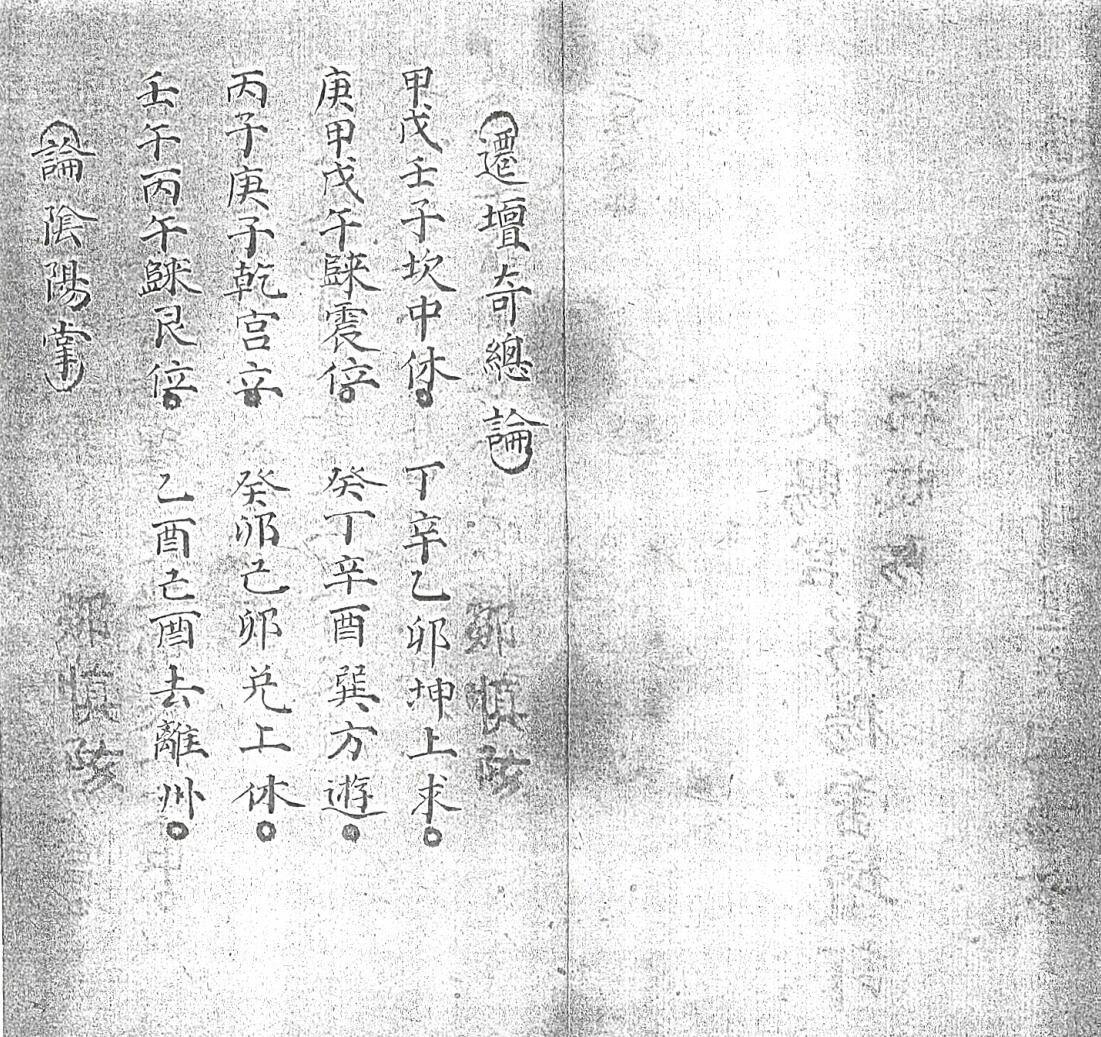 遷壇奇總論
甲戊壬子坎中休。丁辛乙卯坤上求。
庚甲戊午歸震位。癸丁辛酉巽方遊。
丙子庚子乾宮立。癸卯己卯兌上休。
壬午丙午歸艮位。乙酉己酉去離州。
論陰陽掌